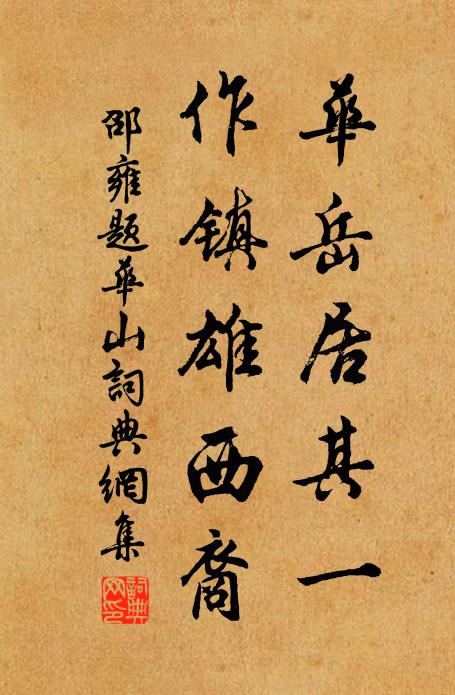 華岳居其一
作镇雄西裔
邵雍题華山詞典網集
詞典網印